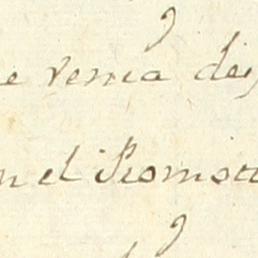 e venia de
n el Promot